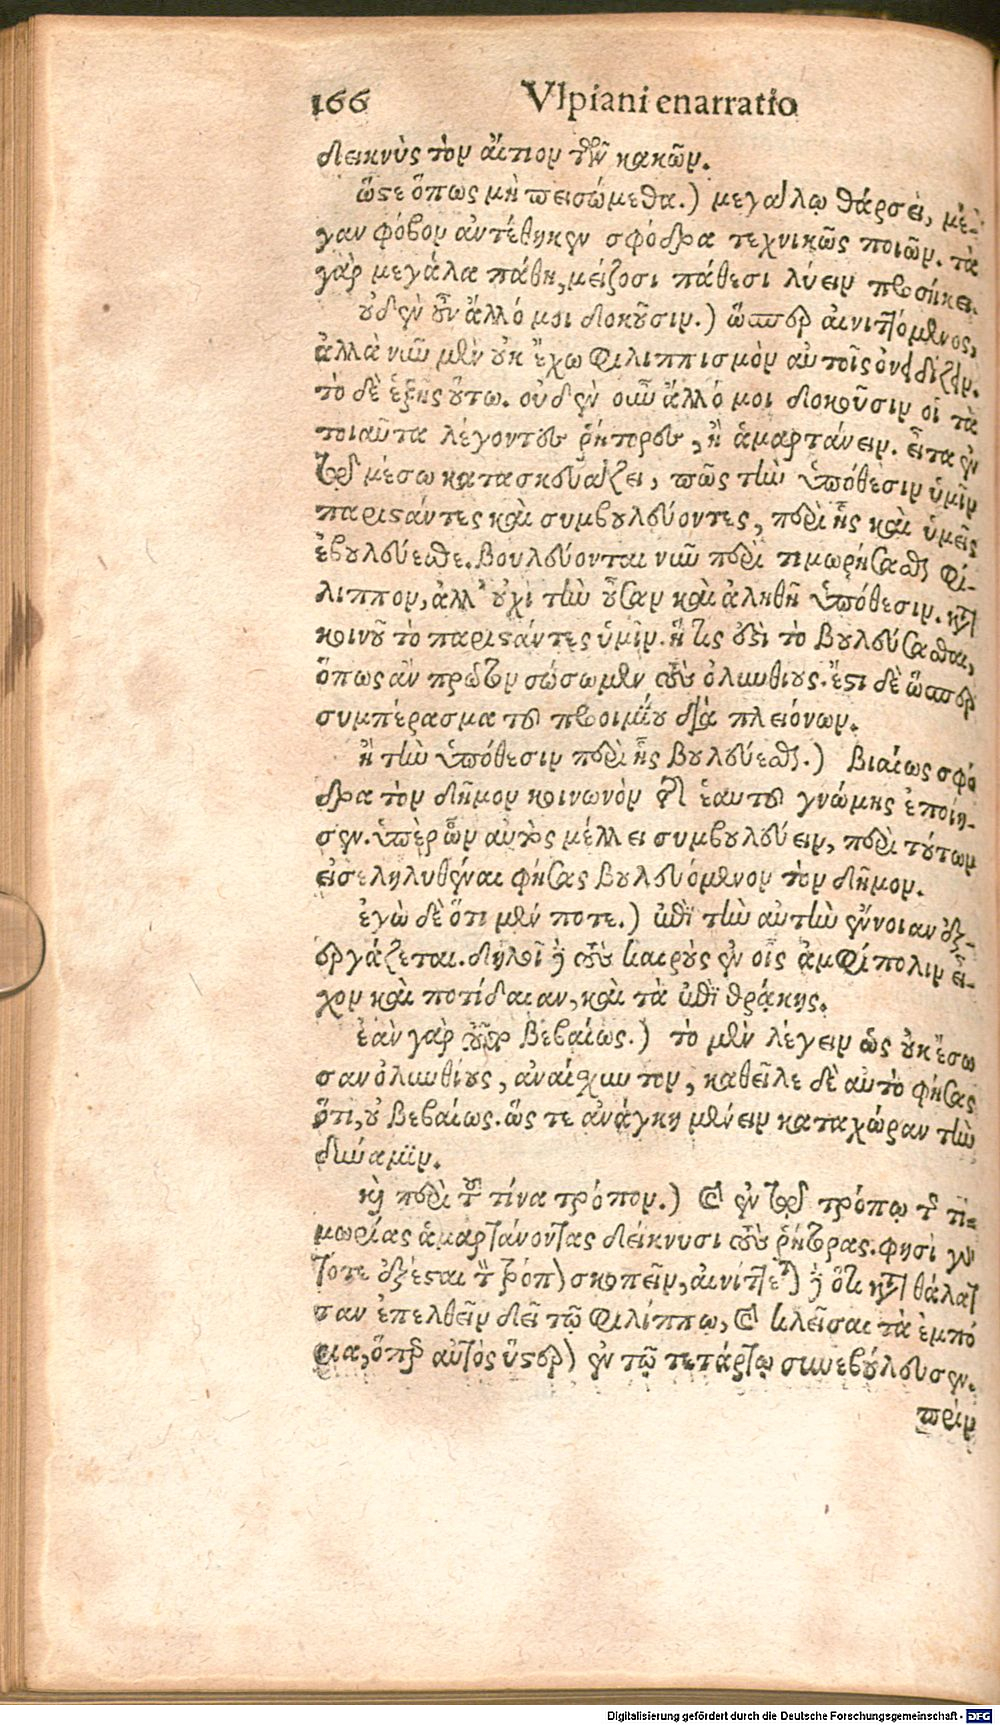 166 Vlpiani enarratio
δεικνὺς τὸν αἴτιον τῶν κακῶν.
ὥστε ὅπως μὴ πεισόμεθα.) μεγάλῳ θάρσει, μέ-
γαν φόβον ἀντέθηκεν σφόδρα τεχνικῶς ποιῶν. τὰ
γὰρ μεγάλα πάθη, μείζοσι πάθεσι λύειν προσήκει.
οὐδὲν οὖν ἄλλό μοι δοκοῦσιν.) ὥσπερ αἰνιττόμενος,
ἀλλὰ νῦν μὲν οὐκ ἔχω φιλιππισμὸν αὐτοῖς ὀνειδίζειν.
τὸ δὲ ἑξῆς οὕτω. οὐδὲν οὖν ἄλλό μοι δοκοῦσιν οἱ τὰ
τοιαῦτα λέγοντες ῥήτορες, ἢ ἁμαρτάνειν. εἶτα ἐν
τῷ μέσω κατασκευάζει, πῶς τὴν ὑπόθεσιν ὑμῖν
παριστάντες καὶ συμβουλεύοντες, περὶ ἧς καὶ ὑμεῖς
ἐβουλεύεσθε. βουλεύονται νῦν περὶ τιμωρήσασθαι φί-
λιππον, ἀλλ' οὐχὶ τὴν οὖσαν καὶ ἀληθῆ ὑπόθεσιν. κατὰ
κοινοῦ τὸ παριστάντες ὑμῖν. ἥ τις ἐστὶ τὸ βουλεύσασθαι,
ὅπως ἂν πρῶτον σώσωμεν τοὺς ὀλυνθίους. ἔστι δὲ ὥσπερ
συμπέρασμα τοῦ προοιμίου διὰ πλειόνων.
ἢ τὴν ὑπόθεσιν περὶ ἧς βουλεύεσθαι.) βιαίως σφό
δρα τὸν δῆμον κοινωνὸν τῆς ἑαυτοῦ γνώμης ἐποίη-
σεν. ὑπὲρ ὧν αὐτὸς μέλλει συμβουλεύειν, περὶ τούτων
εἰσεληλυθέναι φήσας βουλευόμενον τὸν δῆμον.
ἐγὼ δὲ ὅτι μέν ποτε.) ἐπὶ τὴν αὐτὴν ἔννοιαν ἐξ-
εργάζεται. δηλοῖ δὲ τοὺς καιροὺς ἐν οἷς ἀμφίπολιν εἶ-
χον καὶ ποτίδαιαν, καὶ τὰ ἐπὶ θρᾴκης.
ἐὰν γὰρ τοῦτο βεβαίως.) τὸ μὲν λέγειν ὡς οὐκ ἔσω
σαν ὀλυνθίους, ἀναίσχυντον, καθεῖλε δὲ αὐτὸ φήσας
ὅτι, οὐ βεβαίως. ὥς τε ἀνάγκη μένειν καταχώραν τὴν
δύναμιν.
καὶ περὶ τοῦ τίνα τρόπον.) καὶ ἐν τῷ τρόπῳ τῆς τι-
μωρίας ἁμαρτάνοντας δείκνυσι τοὺς ῥήτορας. φησὶ γὰρ
τότε ἐξέσται τὸν τρόπον σκοπεῖν, αἰνίττεται δὲ ὅτι κατὰ θάλατ
ταν ἐπελθεῖν δεῖ τῷ φιλίππῳ, καὶ κλεῖσαι τὰ ἐμπό
ρια, ὅπερ αὐτὸς ὕστερον ἐν τῷ τετάρτῳ συνεβούλευσεν.
πρὶν
Digitalisierung gefördert durch die Deutsche Forschungsgemeinschaft - DFG